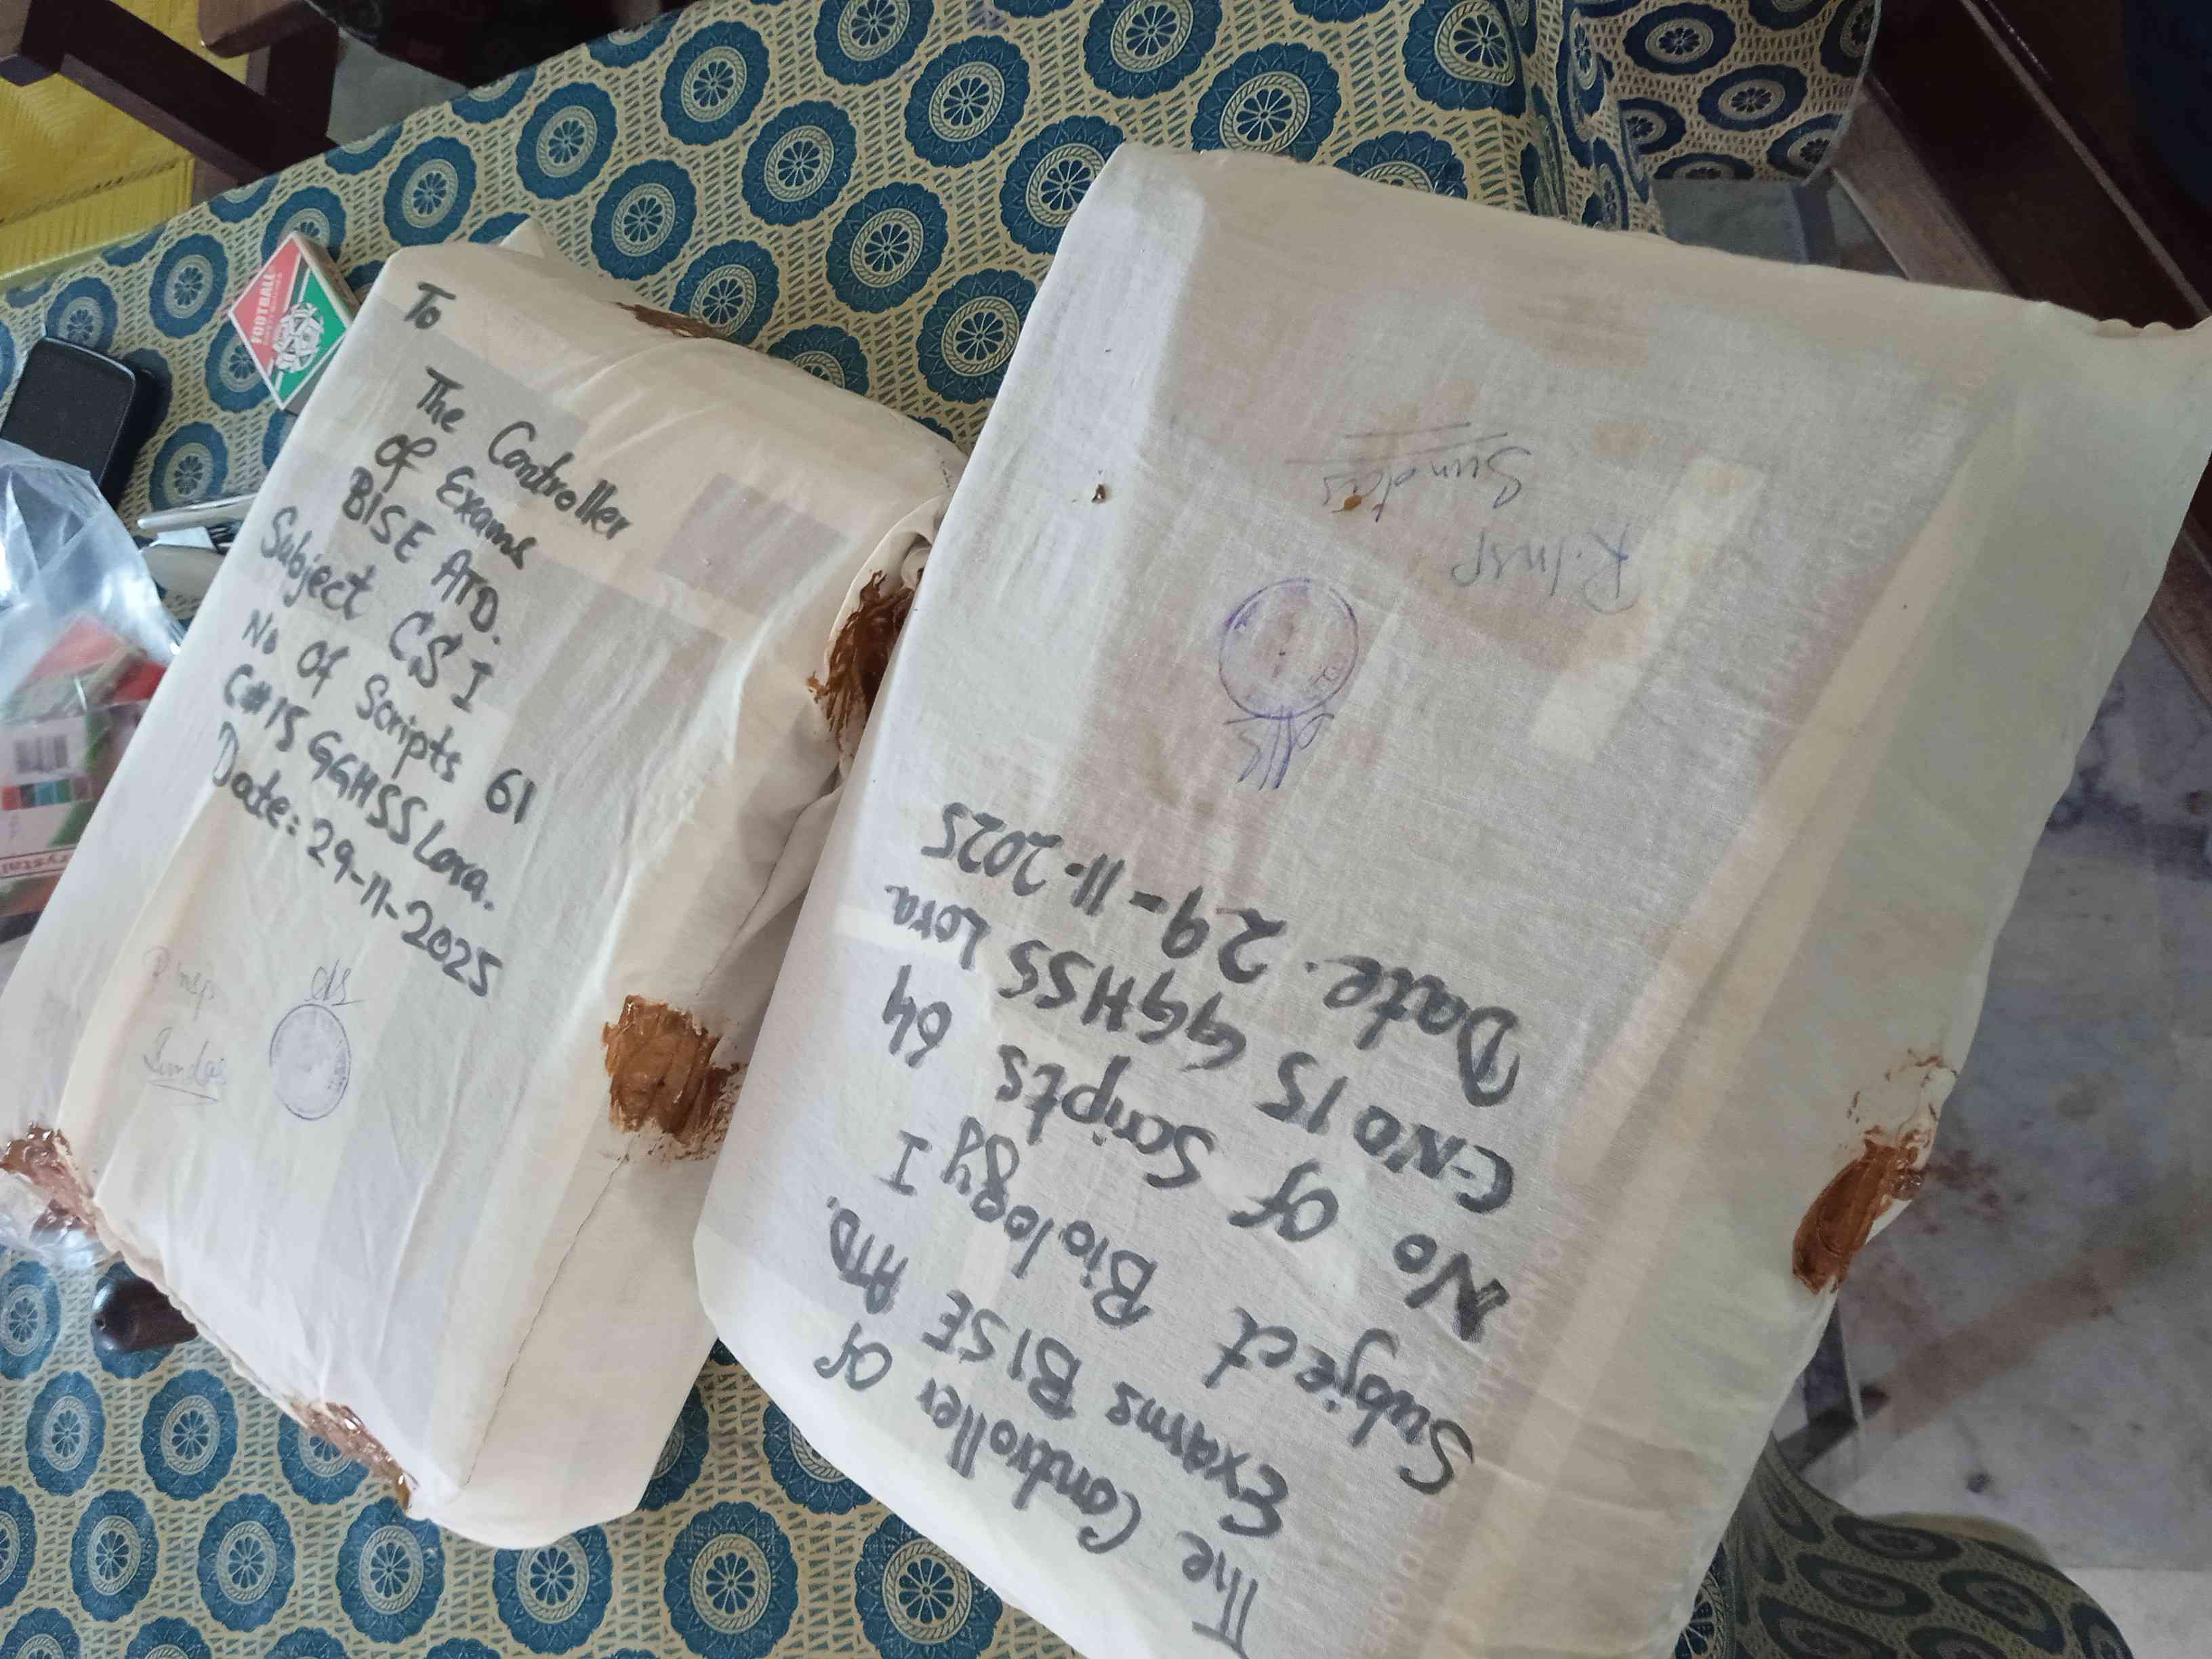 To
The Controller
of Exams
BISE ATD.
Subject CS I
No Of Scripts 61
C#15 GGHSS Lora.
Date: 29-11-2025
R.Insp
Sundas
The Controller Of
Exams BISE ATD.
Subject Biology I
No Of Scripts 64
C.NO 15 GGHSS Lora
Date. 29-11-2025
R.Insp
Sundas
FOOTBALL